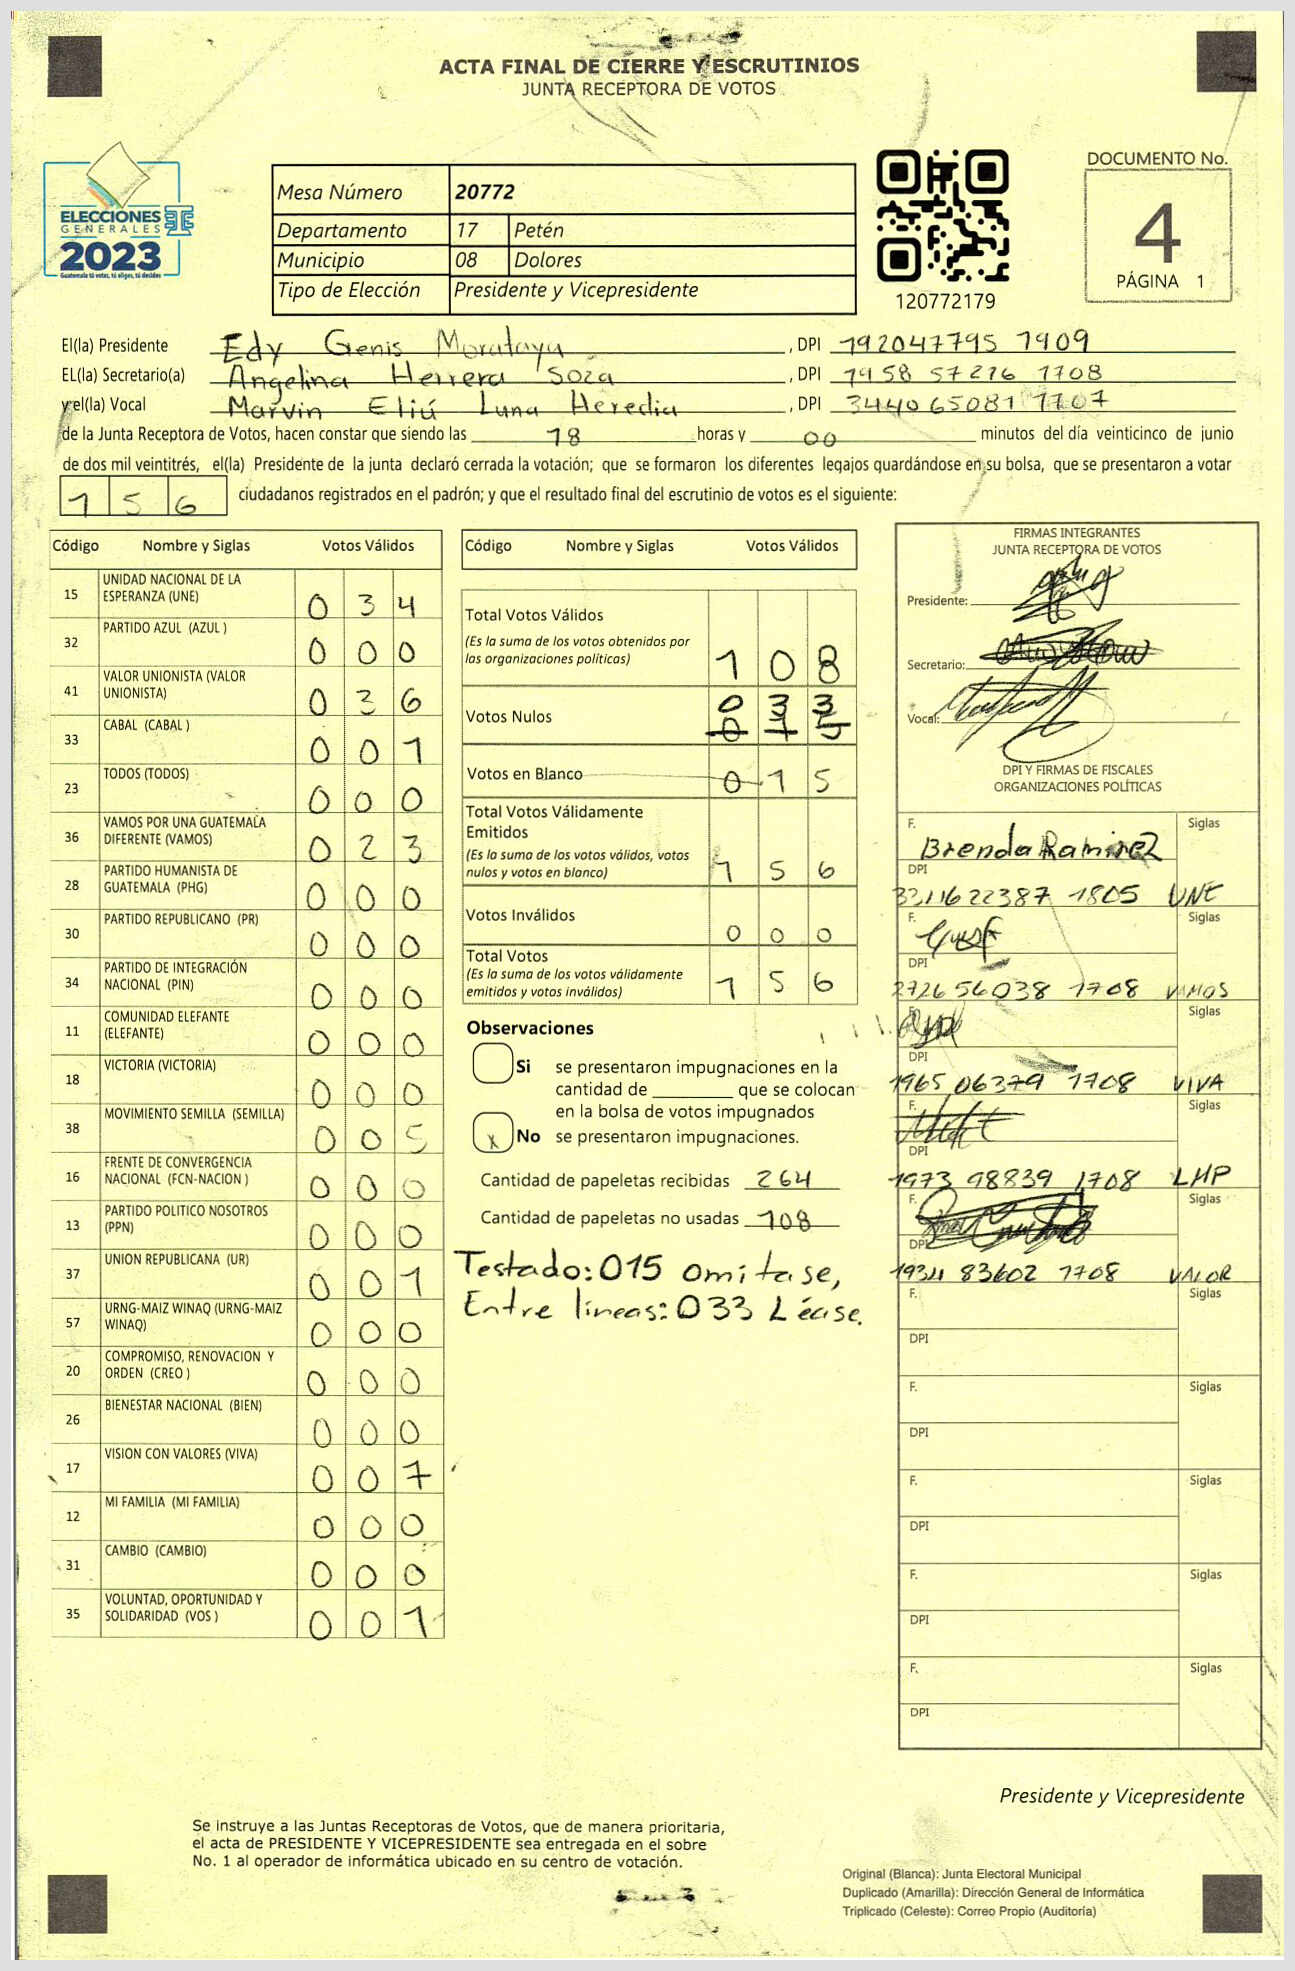 ACTA FINAL DE CIERRE Y ESCRUTINIOS
JUNTA RECEPTORA DE VOTOS
ELECCIONES
GENERALES
2023
Guatemala tú votas, tú eliges, tú decides
Mesa Número 20772
Departamento 17 Petén
Municipio 08 Dolores
Tipo de Elección Presidente y Vicepresidente
120772179
DOCUMENTO No.
4
PÁGINA 1
El(la) Presidente Edy Genis Morataya, DPI 192047795 1909
EL(la) Secretario(a) Angelina Herrera Soza, DPI 1958 57276 1708
y el(la) Vocal Marvin Eliú Luna Heredia, DPI 3440 65081 1707
de la Junta Receptora de Votos, hacen constar que siendo las 18 horas y 00 minutos del día veinticinco de junio
de dos mil veintitrés, el(la) Presidente de la junta declaró cerrada la votación; que se formaron los diferentes legajos guardándose en su bolsa, que se presentaron a votar
156 ciudadanos registrados en el padrón; y que el resultado final del escrutinio de votos es el siguiente:
Código Nombre y Siglas Votos Válidos
15 UNIDAD NACIONAL DE LA ESPERANZA (UNE) 034
32 PARTIDO AZUL (AZUL ) 000
41 VALOR UNIONISTA (VALOR UNIONISTA) 036
33 CABAL (CABAL ) 001
23 TODOS (TODOS) 000
36 VAMOS POR UNA GUATEMALA DIFERENTE (VAMOS) 023
28 PARTIDO HUMANISTA DE GUATEMALA (PHG) 000
30 PARTIDO REPUBLICANO (PR) 000
34 PARTIDO DE INTEGRACIÓN NACIONAL (PIN) 000
11 COMUNIDAD ELEFANTE (ELEFANTE) 000
18 VICTORIA (VICTORIA) 000
38 MOVIMIENTO SEMILLA (SEMILLA) 005
16 FRENTE DE CONVERGENCIA NACIONAL (FCN-NACION ) 000
13 PARTIDO POLITICO NOSOTROS (PPN) 000
37 UNION REPUBLICANA (UR) 001
57 URNG-MAIZ WINAQ (URNG-MAIZ WINAQ) 000
20 COMPROMISO, RENOVACION Y ORDEN (CREO ) 000
26 BIENESTAR NACIONAL (BIEN) 000
17 VISION CON VALORES (VIVA) 007
12 MI FAMILIA (MI FAMILIA) 000
31 CAMBIO (CAMBIO) 000
35 VOLUNTAD, OPORTUNIDAD Y SOLIDARIDAD (VOS ) 001
Código Nombre y Siglas Votos Válidos
Total Votos Válidos
(Es la suma de los votos obtenidos por
las organizaciones políticas) 108
Votos Nulos 033
015
Votos en Blanco 015
Total Votos Válidamente
Emitidos
(Es la suma de los votos válidos, votos
nulos y votos en blanco) 156
Votos Inválidos 000
Total Votos
(Es la suma de los votos válidamente
emitidos y votos inválidos) 156
Observaciones
Si se presentaron impugnaciones en la
cantidad de ________ que se colocan
en la bolsa de votos impugnados
x No se presentaron impugnaciones.
Cantidad de papeletas recibidas 264
Cantidad de papeletas no usadas 108
Testado: 015 omítase,
Entre líneas: 033 Léase.
FIRMAS INTEGRANTES
JUNTA RECEPTORA DE VOTOS
Presidente:
Secretario:
Vocal:
DPI Y FIRMAS DE FISCALES
ORGANIZACIONES POLÍTICAS
F. Brenda Ramirez Siglas
DPI
3311622387 1805 UNE
F. Siglas
DPI
2726 56038 1708 VAMOS
F. Siglas
DPI
1965 06379 1708 VIVA
F. Siglas
DPI
1973 98839 1708 LHP
F. Siglas
DPI
1934 83602 1708 VALOR
F. Siglas
DPI
F. Siglas
DPI
F. Siglas
DPI
F. Siglas
DPI
F. Siglas
DPI
Presidente y Vicepresidente
Se instruye a las Juntas Receptoras de Votos, que de manera prioritaria,
el acta de PRESIDENTE Y VICEPRESIDENTE sea entregada en el sobre
No. 1 al operador de informática ubicado en su centro de votación.
Original (Blanca): Junta Electoral Municipal
Duplicado (Amarilla): Dirección General de Informática
Triplicado (Celeste): Correo Propio (Auditoría)